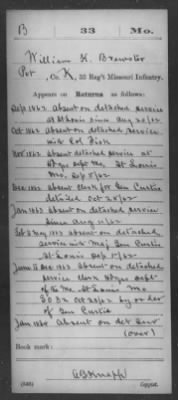 B 33 Mo.
William H. Brewster
Pvt, Co. K, 33 Reg't Missouri Infantry.
Appears on Returns as follows:
Sep 1862 Absent on detached service
at St Louis since Aug 20/62
Oct 1862 Absent on detached service
with Col Fisk
Nov 1862 Absent detached service at
Hdqrs Dept Mo, St Louis
Mo, Sep 5/62
Dec 1862 Absent Clerk for Gen Curtis
detailed Oct 25/62
Jan 1863 Absent on detached service
since Aug 11/62
Feb & May 1863 Absent on detached
service with Maj Gen Curtis
St Louis Sep 5/62
June to Dec 1863 Absent on detached
service Clerk Hdqrs Dept
of the Mo. St Louis Mo
Oct 25/62 by order
of Gen Curtis
Jan 1864 Absent on det Serv
(over)
Book mark:
(546) Copyist.